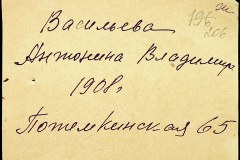 Васильева
Антонина Владимир
1908 г
Потемкинская 65